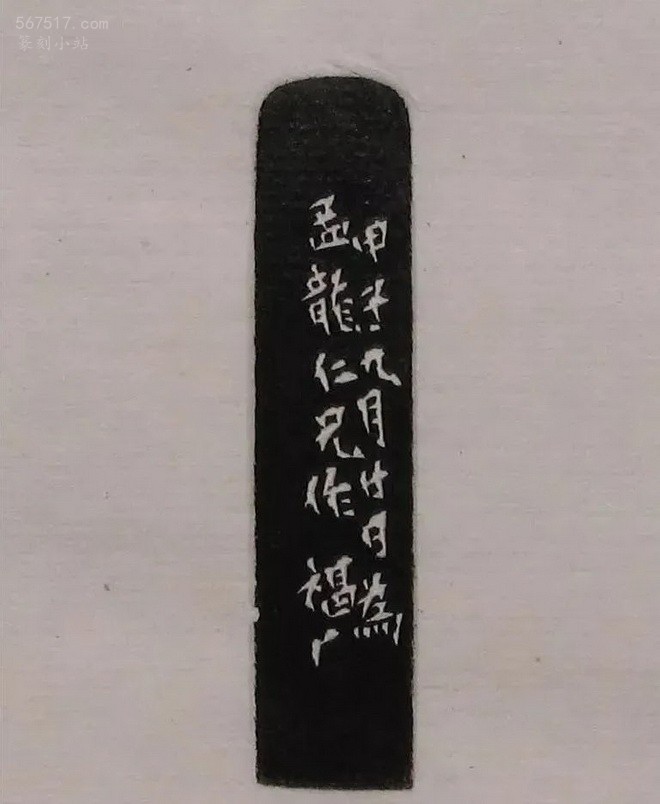 567517.com
篆刻小站
甲九月廿日為
孟龍仁兄作 福厂